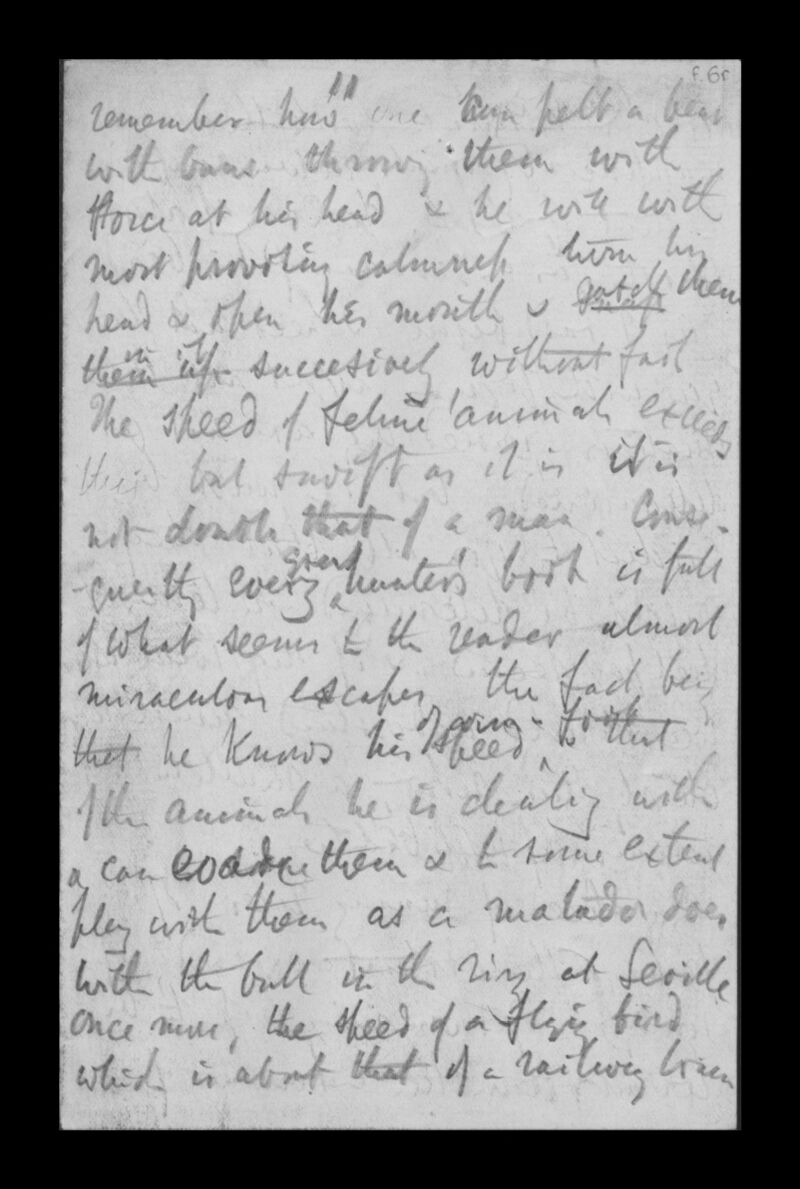 f. 6r
remember how one can pelt a bear
with buns throwing them with
force at his head & he will with
most provoking calmness turn his
head & open his mouth & catch them
them in it up succesively without fail
The speed of feline animals exceeds
their but swift as it is it is
not double that of a man. Conse-
quently every great hunter's book is full
of what seems to the reader almost
miraculous escapes, the fact being
that he knows his speed, & that
of the animals he is dealing with
& can them & to some extent
play with them as a matador does
with the bull in the ring at Seville
once more, the speed of a flying bird
which is about that of a railway train